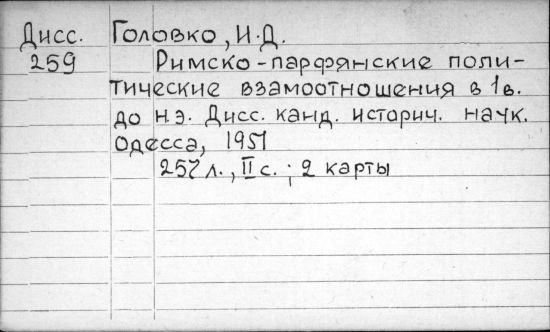 Дисс. Головко, И.Д.
259 Римско-парфянские поли-
тические взамоотношения в 1 в.
до н.э. Дисс. канд. историч. наук.
Одесса, 1951
257 л., II с.; 2 карты